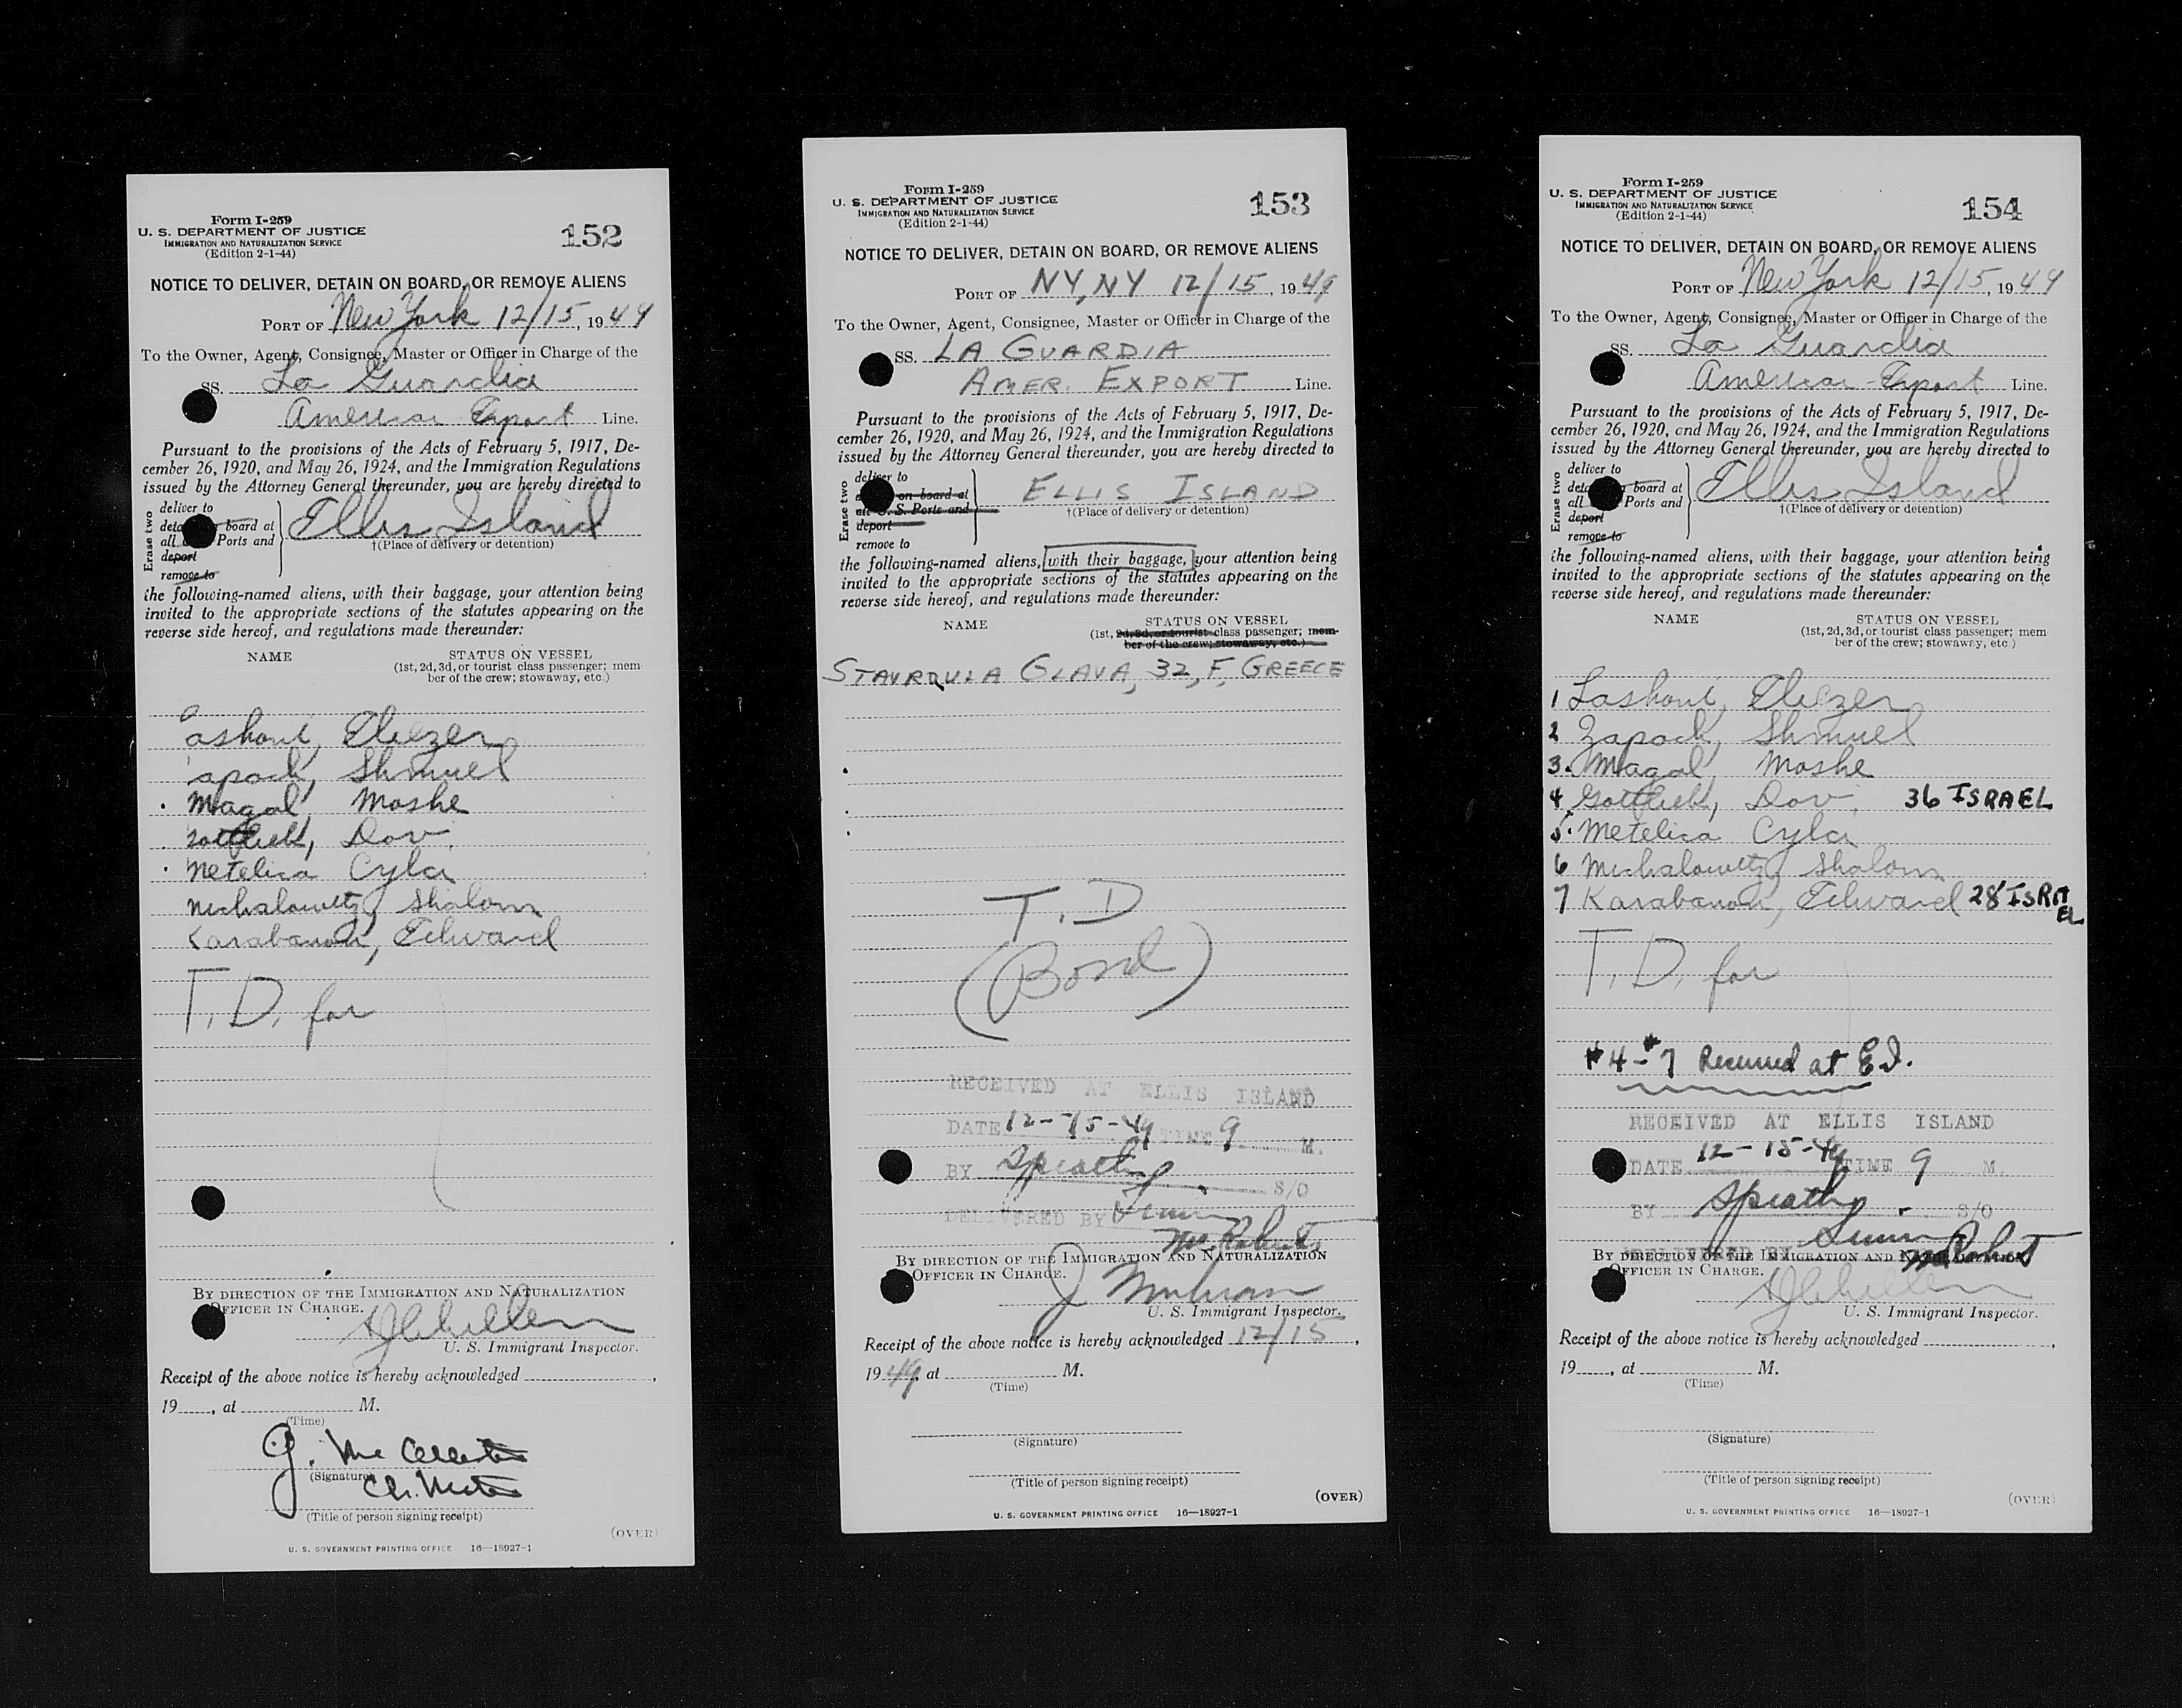 Form I-259
U. S. DEPARTMENT OF JUSTICE
IMMIGRATION AND NATURALIZATION SERVICE
(Edition 2-1-44)
152
NOTICE TO DELIVER, DETAIN ON BOARD, OR REMOVE ALIENS
PORT OF New York 12/15, 1949
To the Owner, Agent, Consignee, Master or Officer in Charge of the
SS. La Guardia
American Export Line.
Pursuant to the provisions of the Acts of February 5, 1917, De-
cember 26, 1920, and May 26, 1924, and the Immigration Regulations
issued by the Attorney General thereunder, you are hereby directed to
Erase two
deliver to
deta board at
all Ports and
deport
remove to
Ellis Island
†(Place of delivery or detention)
the following-named aliens, with their baggage, your attention being
invited to the appropriate sections of the statutes appearing on the
reverse side hereof, and regulations made thereunder:
NAME
STATUS ON VESSEL
(1st, 2d, 3d, or tourist class passenger; mem-
ber of the crew; stowaway, etc.)
ashoni, Eliezer
apoch, Shmuel
Magal, Moshe
ottlieb, Dov
Metelica Cyla
Michalowitz, Shalom
Karabanoh, Edward
T. D. for
BY DIRECTION OF THE IMMIGRATION AND NATURALIZATION
OFFICER IN CHARGE.
U. S. Immigrant Inspector.
Receipt of the above notice is hereby acknowledged
19, at M.
(Time)
(Signature)
(Title of person signing receipt)
(OVER)
U. S. GOVERNMENT PRINTING OFFICE 16—18927-1
Form I-259
U. S. DEPARTMENT OF JUSTICE
IMMIGRATION AND NATURALIZATION SERVICE
(Edition 2-1-44)
153
NOTICE TO DELIVER, DETAIN ON BOARD, OR REMOVE ALIENS
PORT OF NY, NY 12/15, 1949
To the Owner, Agent, Consignee, Master or Officer in Charge of the
SS. LA GUARDIA
AMER. EXPORT Line.
Pursuant to the provisions of the Acts of February 5, 1917, De-
cember 26, 1920, and May 26, 1924, and the Immigration Regulations
issued by the Attorney General thereunder, you are hereby directed to
Erase two
deliver to
on board at
all U. S. Ports and
deport
remove to
ELLIS ISLAND
†(Place of delivery or detention)
the following-named aliens, with their baggage, your attention being
invited to the appropriate sections of the statutes appearing on the
reverse side hereof, and regulations made thereunder:
NAME
STATUS ON VESSEL
(1st, 2d, 3d, or tourist class passenger; mem-
ber of the crew; stowaway, etc.)
STAVROULA GLAVA, 32, F, GREECE
T. D
(Bond)
RECEIVED AT ELLIS ISLAND
DATE 12-15-49 TIME 9 M.
BY Speath S/O
DELIVERED BY
BY DIRECTION OF THE IMMIGRATION AND NATURALIZATION
OFFICER IN CHARGE.
U. S. Immigrant Inspector.
Receipt of the above notice is hereby acknowledged 12/15,
1949, at M.
(Time)
(Signature)
(Title of person signing receipt)
(OVER)
U. S. GOVERNMENT PRINTING OFFICE 16—18927-1
Form I-259
U. S. DEPARTMENT OF JUSTICE
IMMIGRATION AND NATURALIZATION SERVICE
(Edition 2-1-44)
154
NOTICE TO DELIVER, DETAIN ON BOARD, OR REMOVE ALIENS
PORT OF New York 12/15, 1949
To the Owner, Agent, Consignee, Master or Officer in Charge of the
SS. La Guardia
American Export Line.
Pursuant to the provisions of the Acts of February 5, 1917, De-
cember 26, 1920, and May 26, 1924, and the Immigration Regulations
issued by the Attorney General thereunder, you are hereby directed to
Erase two
deliver to
deta board at
all Ports and
deport
remove to
Ellis Island
†(Place of delivery or detention)
the following-named aliens, with their baggage, your attention being
invited to the appropriate sections of the statutes appearing on the
reverse side hereof, and regulations made thereunder:
NAME
STATUS ON VESSEL
(1st, 2d, 3d, or tourist class passenger; mem-
ber of the crew; stowaway, etc.)
1 Lashoni, Eliezer
2 Zapoch, Shmuel
3. Magal, Moshe
4 Gottlieb, Dov 36 ISRAEL
5. Metelica Cyla
6 Michalowitz, Shalom
7 Karabanoh, Edward 28 ISRAEL
T. D. for
#4-#7 Received at E.I.
RECEIVED AT ELLIS ISLAND
DATE 12-15-49 TIME 9 M.
BY Speath S/O
DELIVERED BY
BY DIRECTION OF THE IMMIGRATION AND NATURALIZATION
OFFICER IN CHARGE.
U. S. Immigrant Inspector.
Receipt of the above notice is hereby acknowledged
19, at M.
(Time)
(Signature)
(Title of person signing receipt)
(OVER)
U. S. GOVERNMENT PRINTING OFFICE 16—18927-1